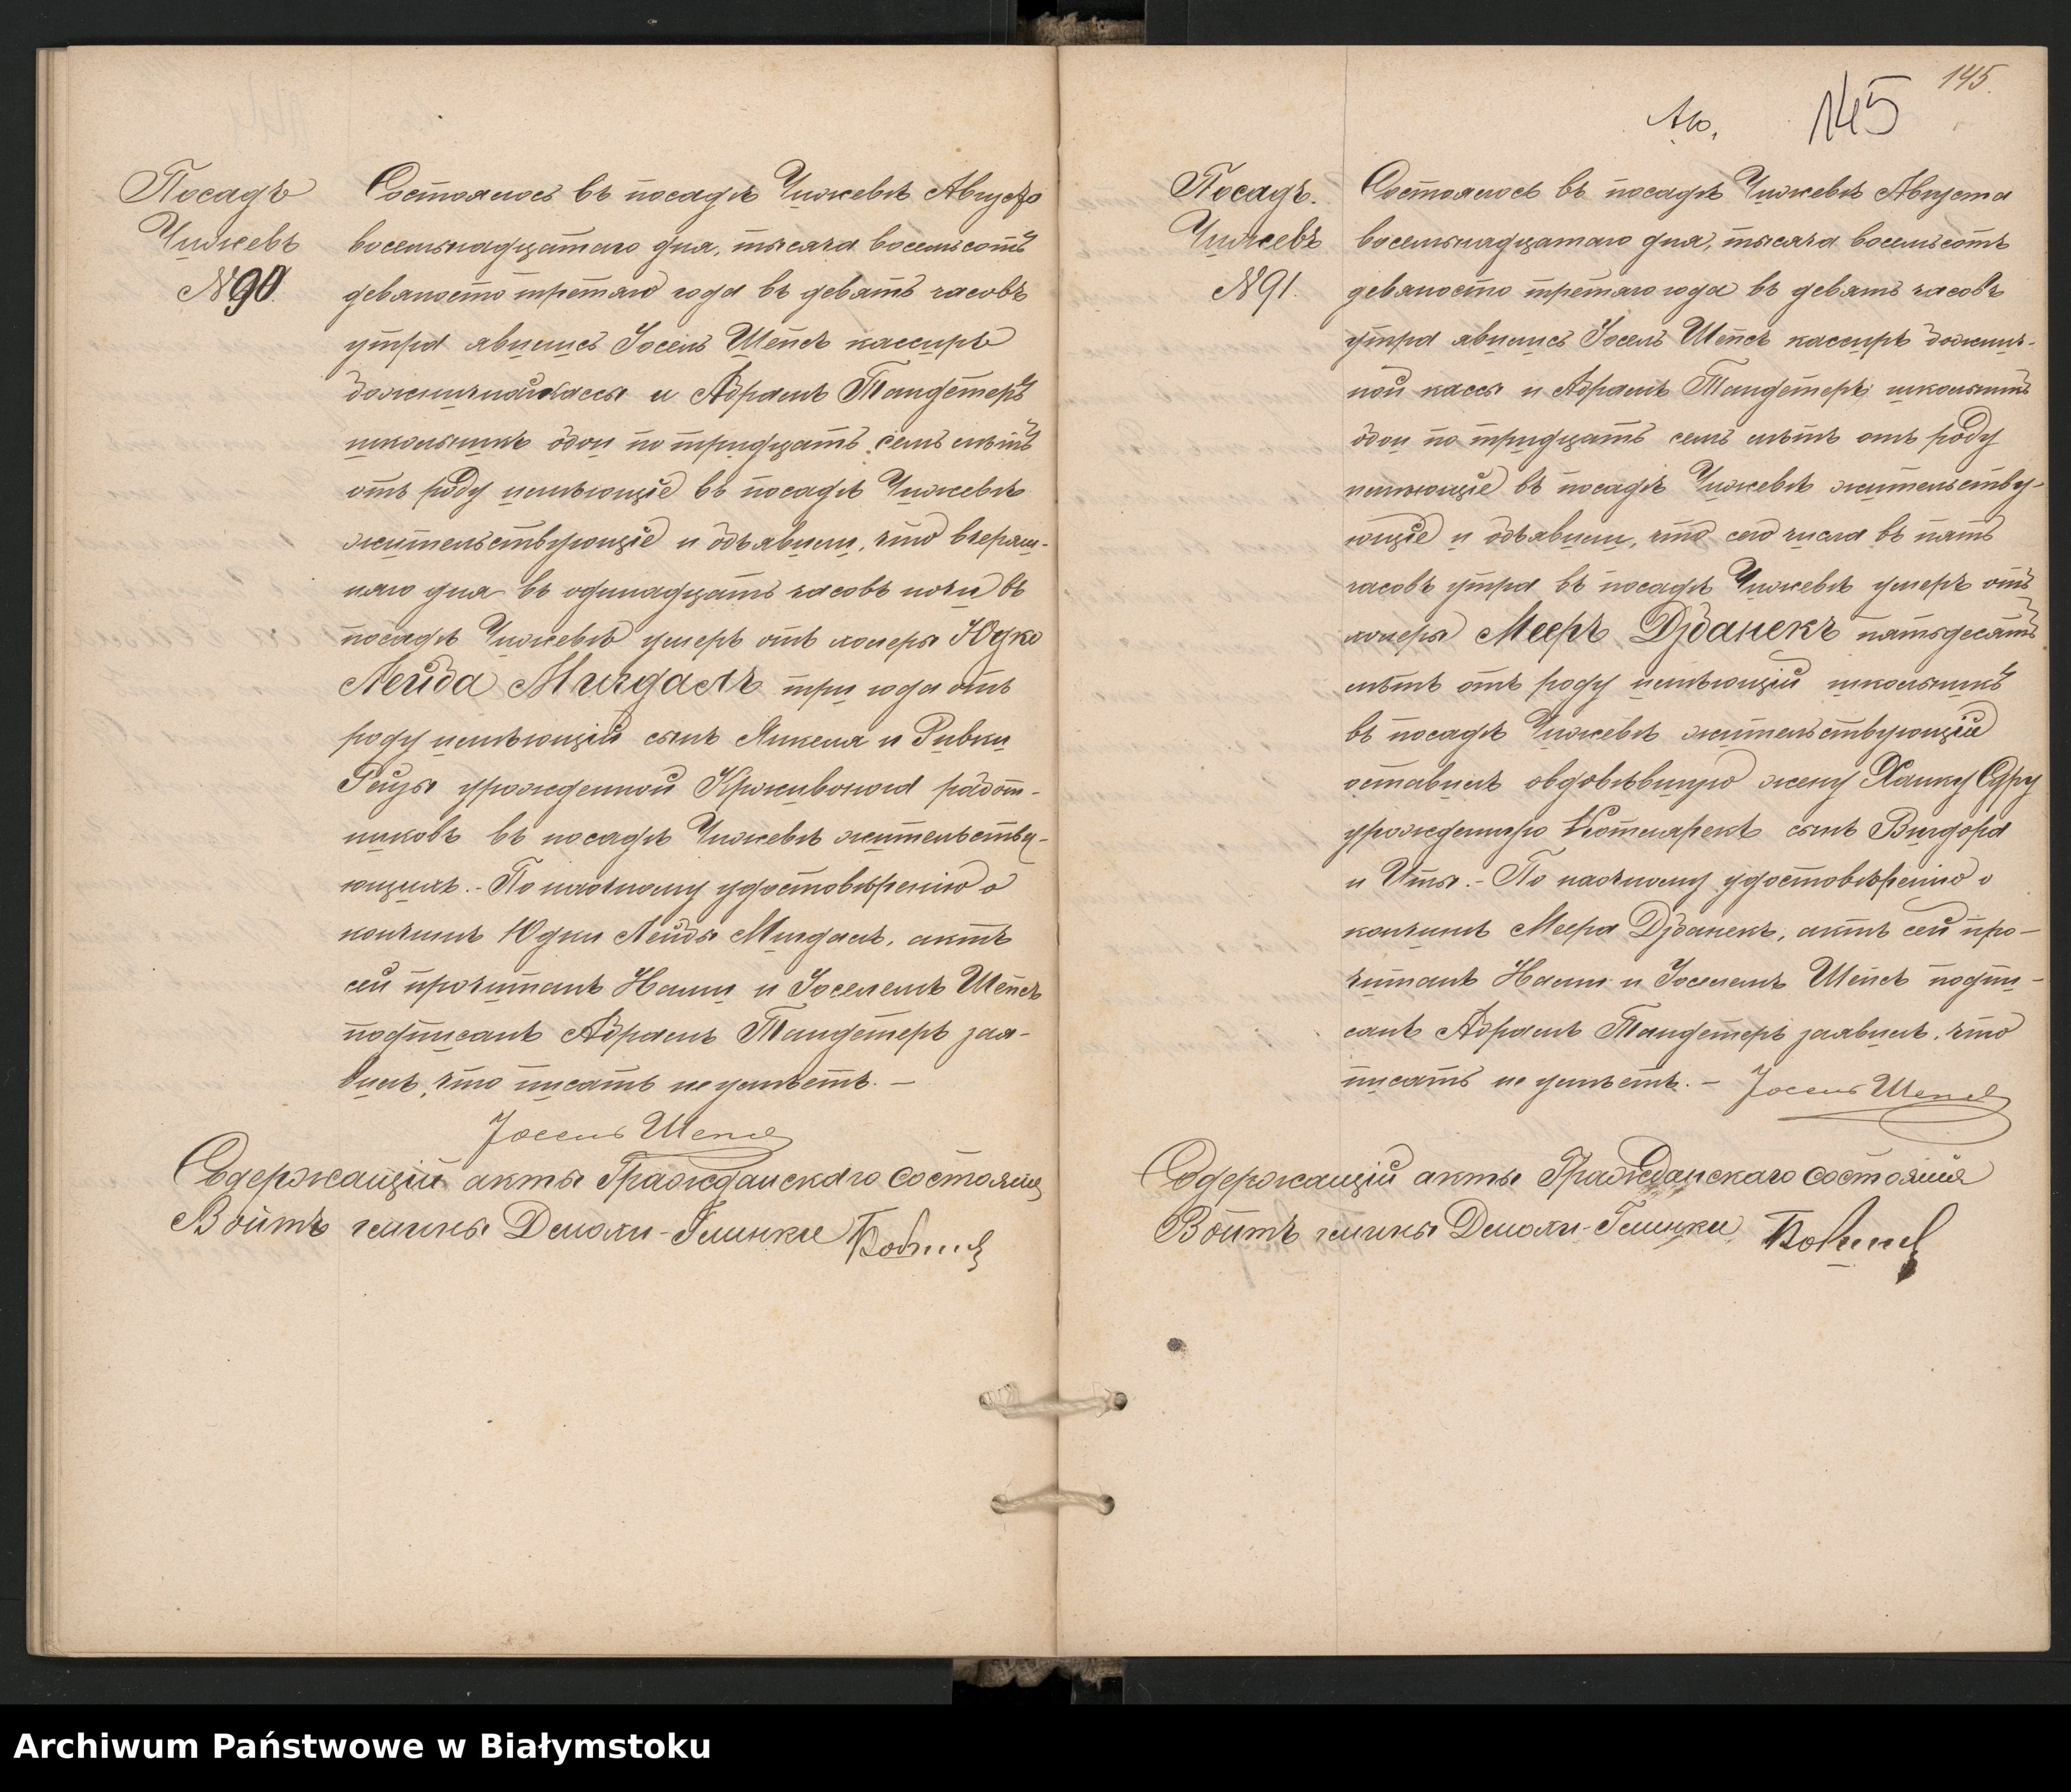 Посадъ
Чижевъ
№90.
Состоялось въ посадѣ Чижевѣ Августа
восемьнадцатаго дня, тысяча восемьсотъ
девяносто третьяго года въ девять часовъ
утра явились Іосель Шепсъ кассиръ
божничной кассы и Абрамъ Тандетеръ
школьникъ обои по тридцать семь лѣтъ
отъ роду имѣющіе въ посадѣ Чижевѣ
жительствующіе и объявили, что вчераш-
няго дня въ одинадцать часовъ ночи въ
посадѣ Чижевѣ умеръ отъ холеры Юдко
Лейба Мигдалъ три года отъ
роду имѣющій сынъ Янкеля и Ривки
Рейзы урожденной работ-
никовъ въ посадѣ Чижевѣ жительству-
ющихъ.- По наочному удостовѣренію о
кончинѣ Юдки Лейбы Мигдалъ, актъ
сей прочитанъ Нами и Іоселемъ Шепсъ
подписанъ Абрамъ Тандетеръ зая-
вилъ, что писать не умѣетъ. –
Іосель Шепсъ
Содержащій акты Гражданскаго состоянія
Войтъ гмины Дмохи-Глинки
145.
145
Посадъ.
Чижевъ
№91.
Состоялось въ посадѣ Чижевѣ Августа
восемьнадцатаго дня, тысяча восемьсотъ
девяносто третьяго года въ девять часовъ
утра явились Іосель Шепсъ кассиръ божнич-
ной кассы и Абрамъ Тандетеръ школьникъ
обои по тридцать семь лѣтъ отъ роду
имѣющіе въ посадѣ Чижевѣ жительству-
ющіе и объявили, что сего числа въ пять
часовъ утра въ посадѣ Чижевѣ умеръ отъ
холеры Мееръ Дзбанекъ пятьдесятъ
лѣтъ отъ роду имѣющій школьникъ
въ посадѣ Чижевѣ жительствующій
оставилъ овдовѣвшую жену Ханку Сору
урожденную Котлярекъ сынъ Вигдора
и Иты.- По наочному удостовѣренію о
кончинѣ Меера Дзбанекъ, актъ сей про-
читанъ Нами и Іоселемъ Шепсъ подпи-
санъ Абрамъ Тандетеръ заявилъ, что
писать не умѣетъ. – Іосель Шепсъ
Содержащій акты Гражданскаго состоянія
Войтъ гмины Дмохи-Глинки
Archiwum Państwowe w Białymstoku